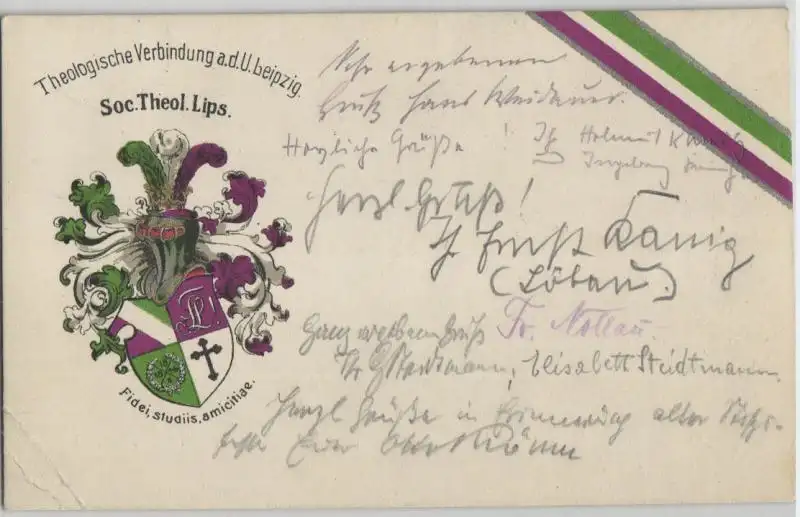 Theologische Verbindung a.d.U. Leipzig.
Soc. Theol. Lips.
Fidei, studiis, amicitiae.
Sehr ergebenen
Gruß Hans Weidauer.
Herzliche Grüße! Ihr Helmut
Ingeborg
Herzl Gruß!
Ernst Kanig
(Löbau)
Ganz ergebenen Gruß Fr. Nollau
Ihr Steidtmann, Elisabett Steidtmann
Herzl Grüße in Erinnerung alter
Euer Otto